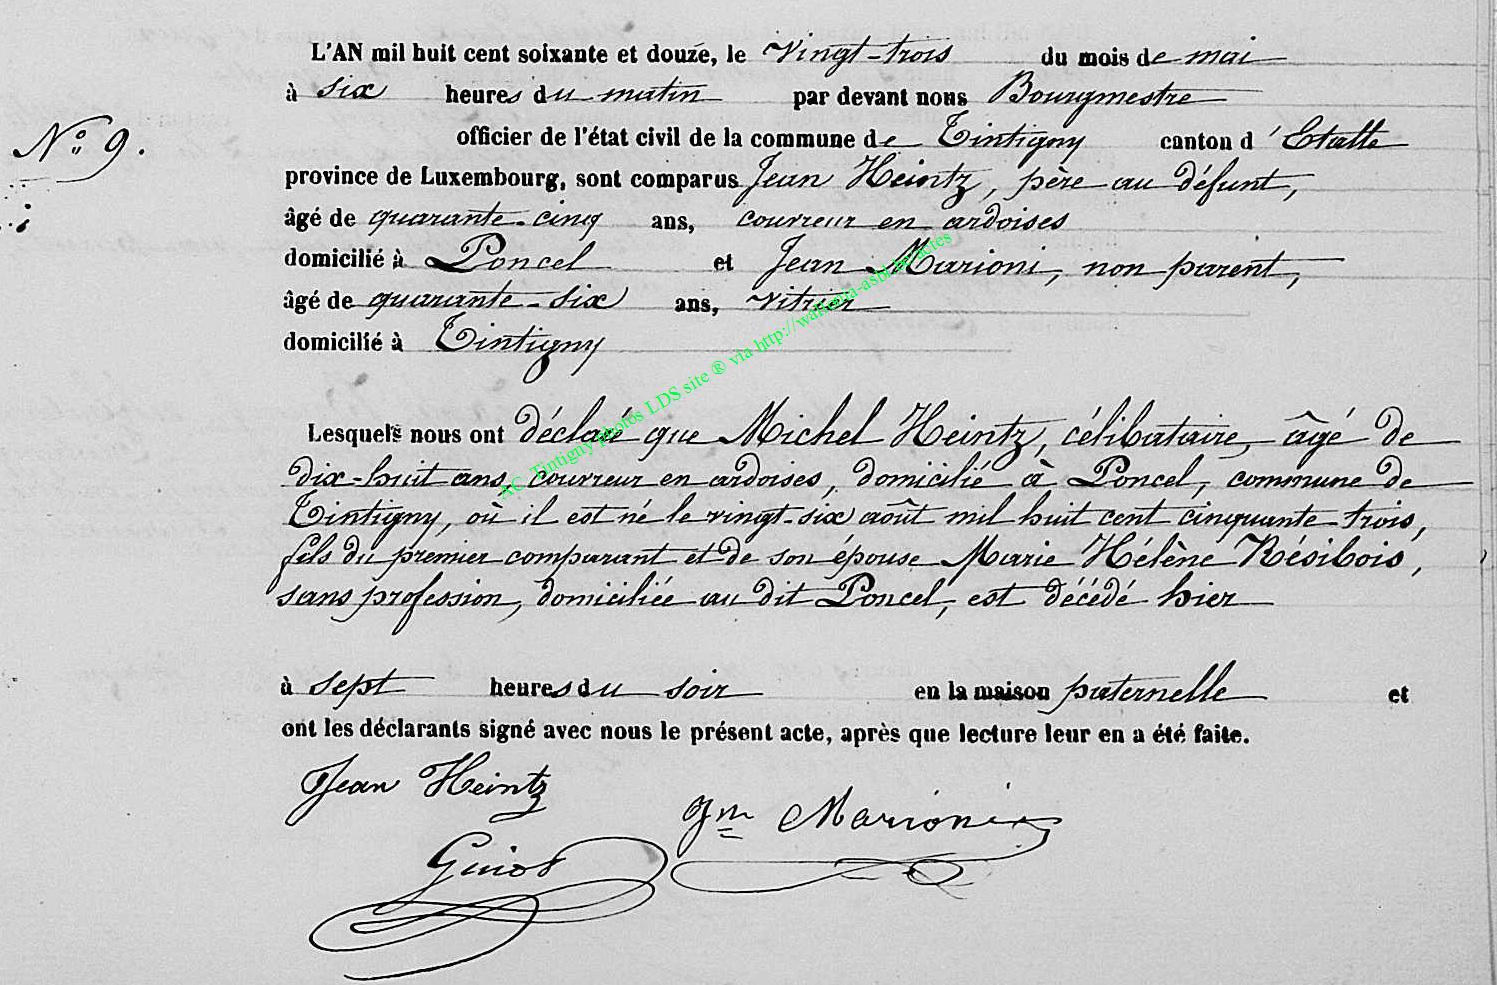 L'AN mil huit cent soixante et douze, le vingt-trois du mois de mai
à six heures du matin par devant nous Bourgmestre
N° 9.
officier de l'état civil de la commune de Tintigny canton d'Etalle
province de Luxembourg, sont comparus Jean Heintz, père au défunt,
âgé de quarante-cinq ans, couvreur en ardoises
domicilié à Poncel et Jean Marioni, non parent,
âgé de quarante-six ans, vitrier
domicilié à Tintigny
AC Tintigny photos LDS site ® via http://wallonia-asbl.be/actes
Lesquels nous ont déclaré que Michel Heintz, célibataire, âgé de
dix-huit ans, couvreur en ardoises, domicilié à Poncel, commune de
Tintigny, où il est né le vingt-six août mil huit cent cinquante-trois,
fils du premier comparant et de son épouse Marie Hélène Résibois,
sans profession, domiciliée au dit Poncel, est décédé hier
à sept heures du soir en la maison paternelle et
ont les déclarants signé avec nous le présent acte, après que lecture leur en a été faite.
Jean Heintz
Jn Marioni
Guiot